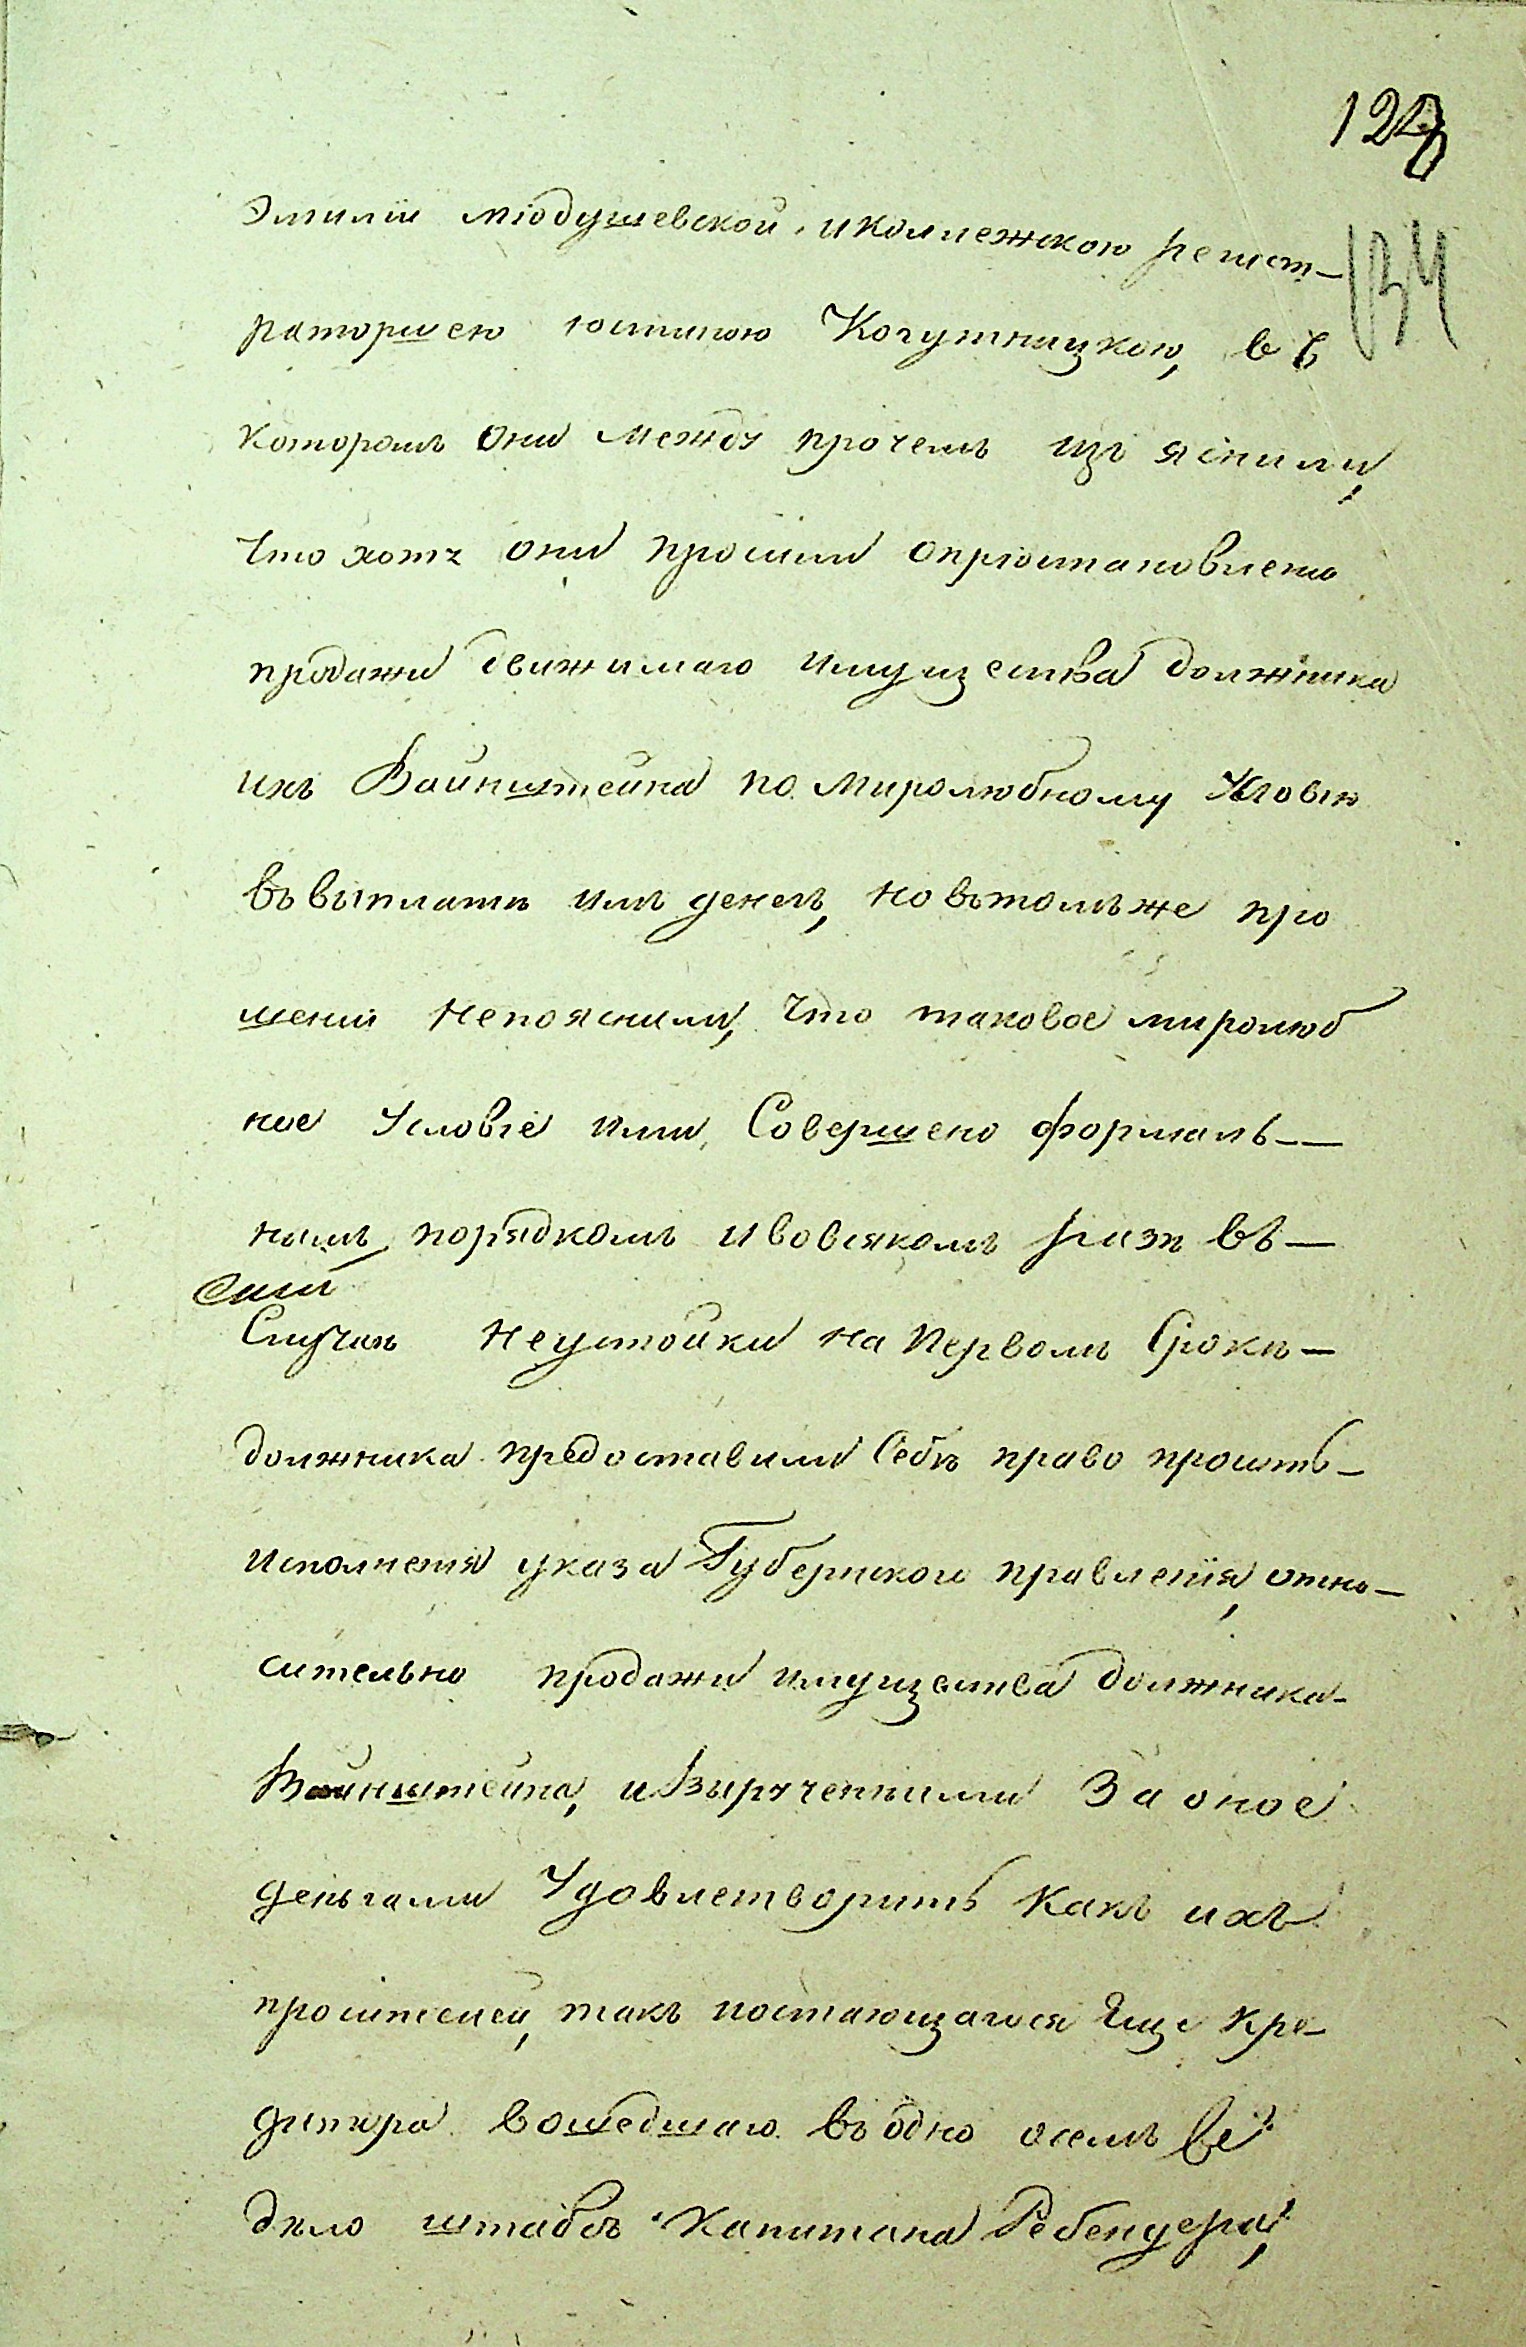 128
134
Эмиліи Мюдушевской, и коллежскою регист-
раторшею Юстиною Когутницкою, въ
которомъ они между прочемъ изъяснили,
что хотя они просили опріостановлени
продажи движимаго имущества должника
ихъ Вайнштейна по миролюбному Условію
въ выплатѣ имъ денегъ, но въ томъ же про
шеніи непояснили, что таковое миролюб
ное Условіе ими Совершено формаль-
нымъ порядкомъ и вовсякомъ разѣ въ-
сими
Случаѣ Неустойки на Первомъ Срокѣ-
должника предоставили Себѣ право просить-
исполненія указа Губернского правленія, отно-
сительно продажи имущества должника-
Вайнштейна, и Вырученными За оное
деньгами Удовлетворить Какъ ихъ
просителей, такъ иостающагося Еще Кре-
дитора вошедшаго въ одно осемъ
дѣло штабсъ Капитана Ребендера,